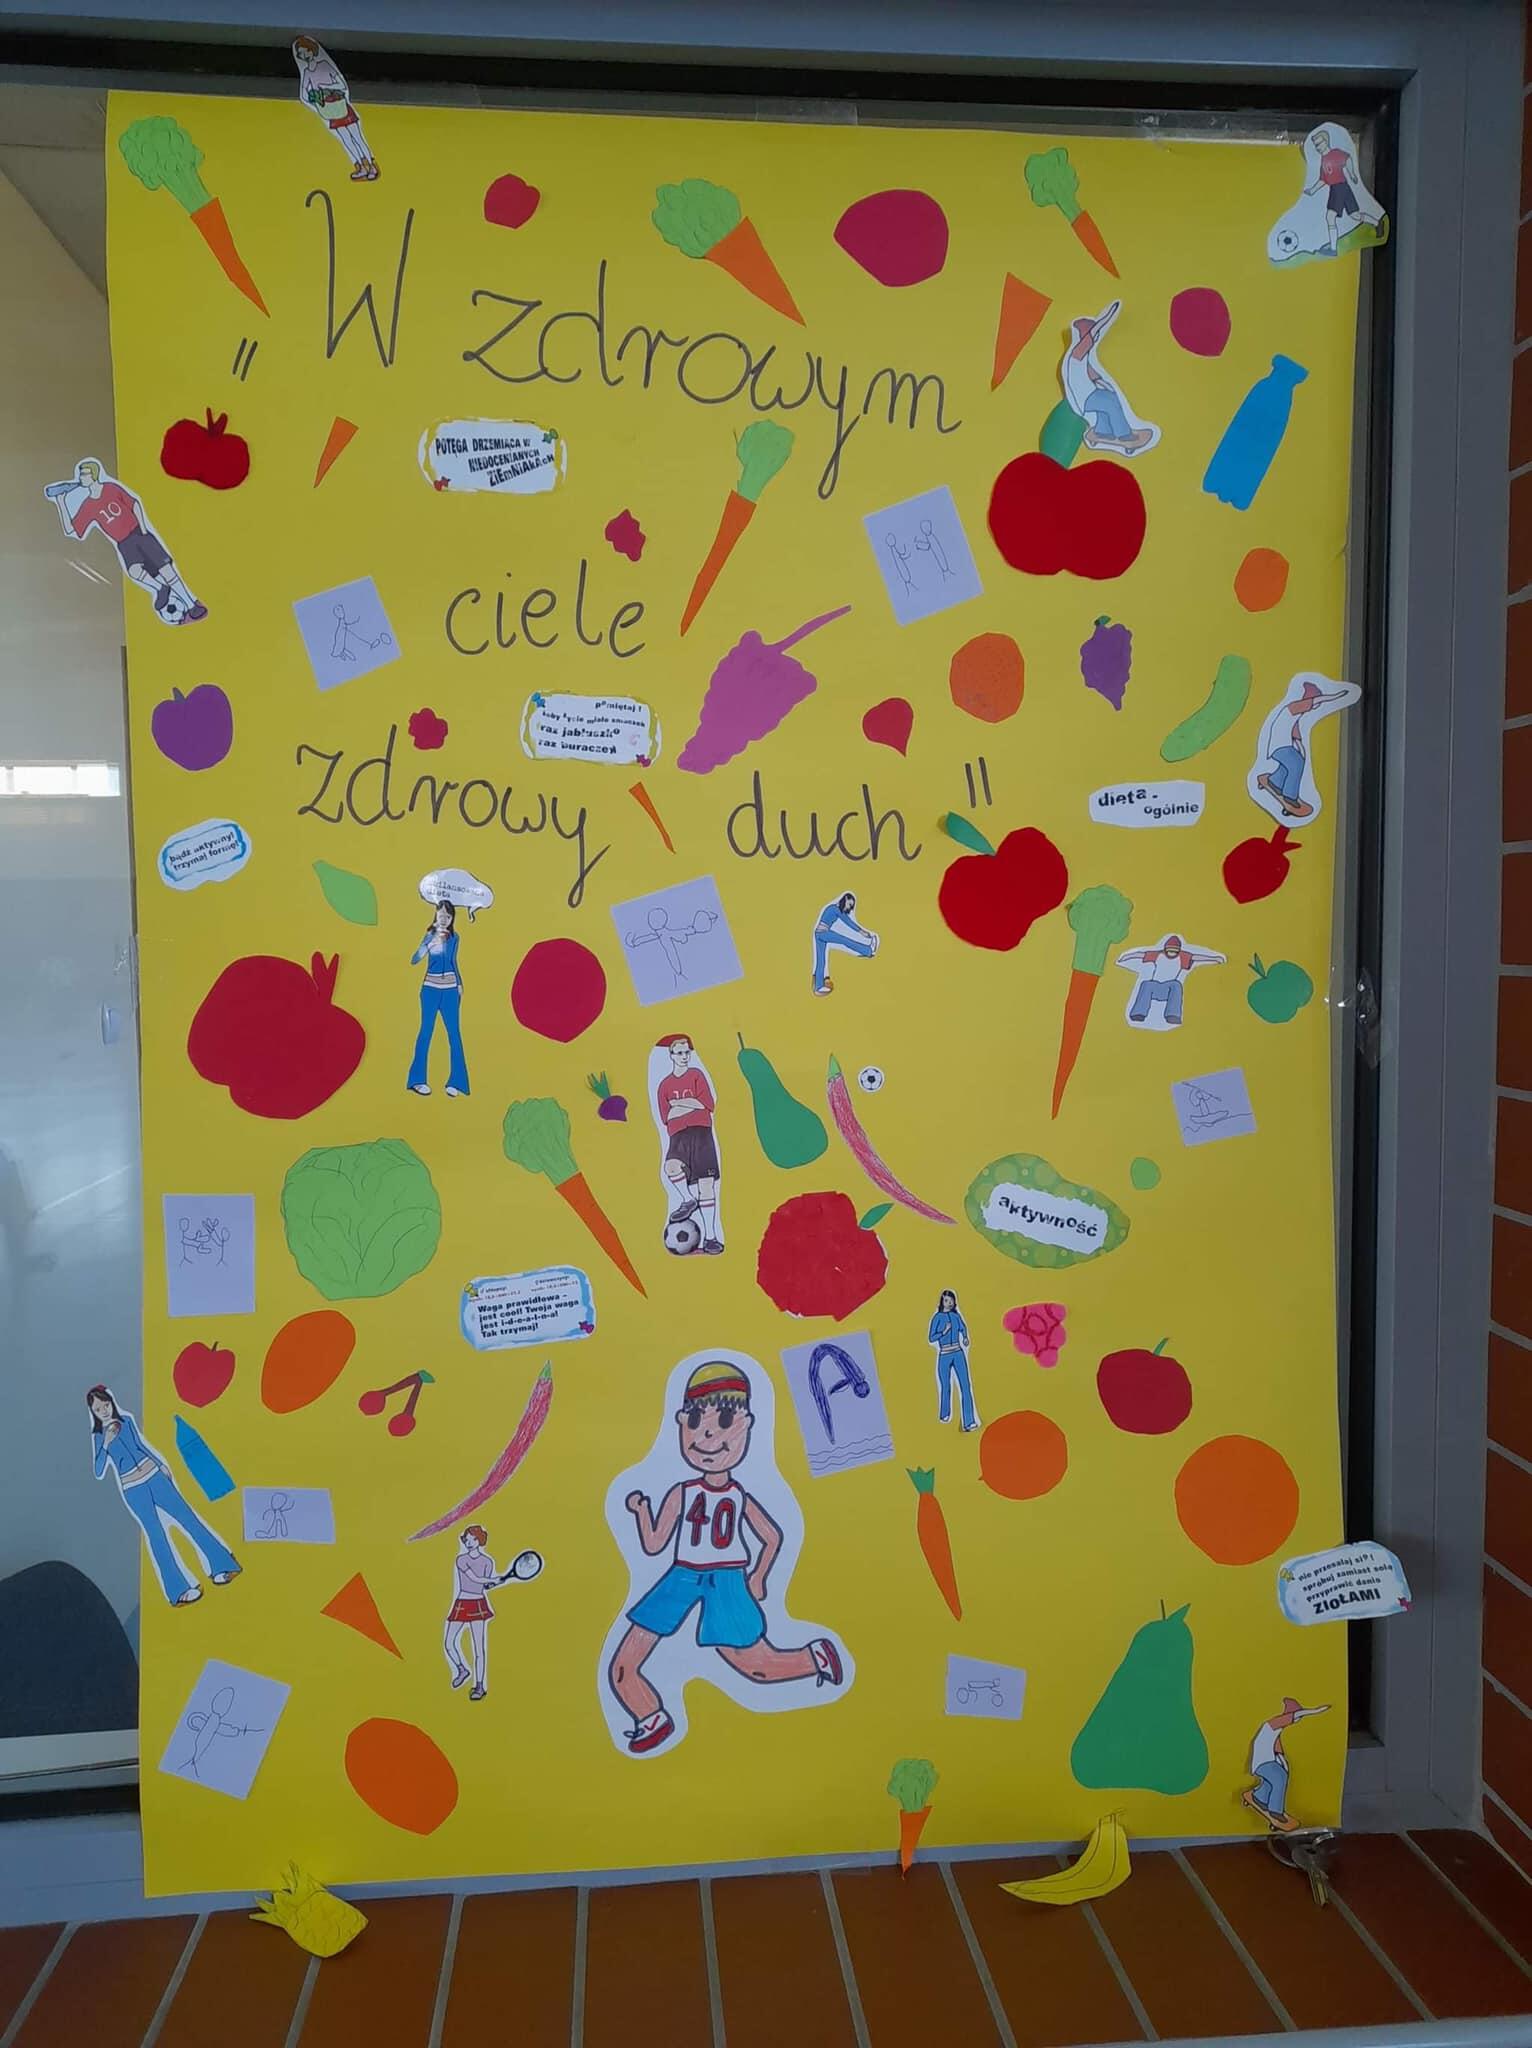 " W zdrowym
POTĘGA DRZEMIĄCA W
NIEDOCENIANYCH
ZIEMNIAKACH
10
10
ciele
pamiętaj!
żeby życie miało smaczek
raz jabłuszko
raz buraczek
zdrowy duch "
dieta -
ogólnie
bądź aktywny!
trzymaj formę!
dieta
10
aktywność
Waga prawidłowa -
jest cool! Twoja waga
jest i-d-e-a-l-n-a!
Tak trzymaj!
40
nie przesalaj się!
spróbuj zamiast solą
przyprawić dania
ZIOŁAMI